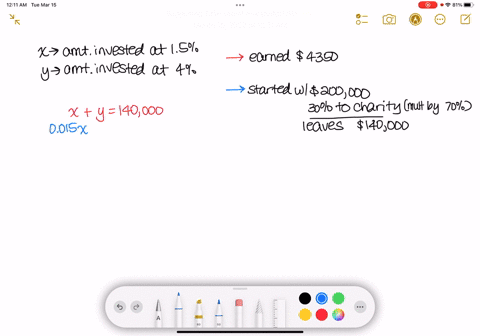 12:11 AM Tue Mar 15
x → amt. invested at 1.5%
y → amt. invested at 4%
x + y = 140,000
0.015x
→ earned $4350
→ started w/ $200,000
30% to charity (mult by 70%)
leaves $140,000
A